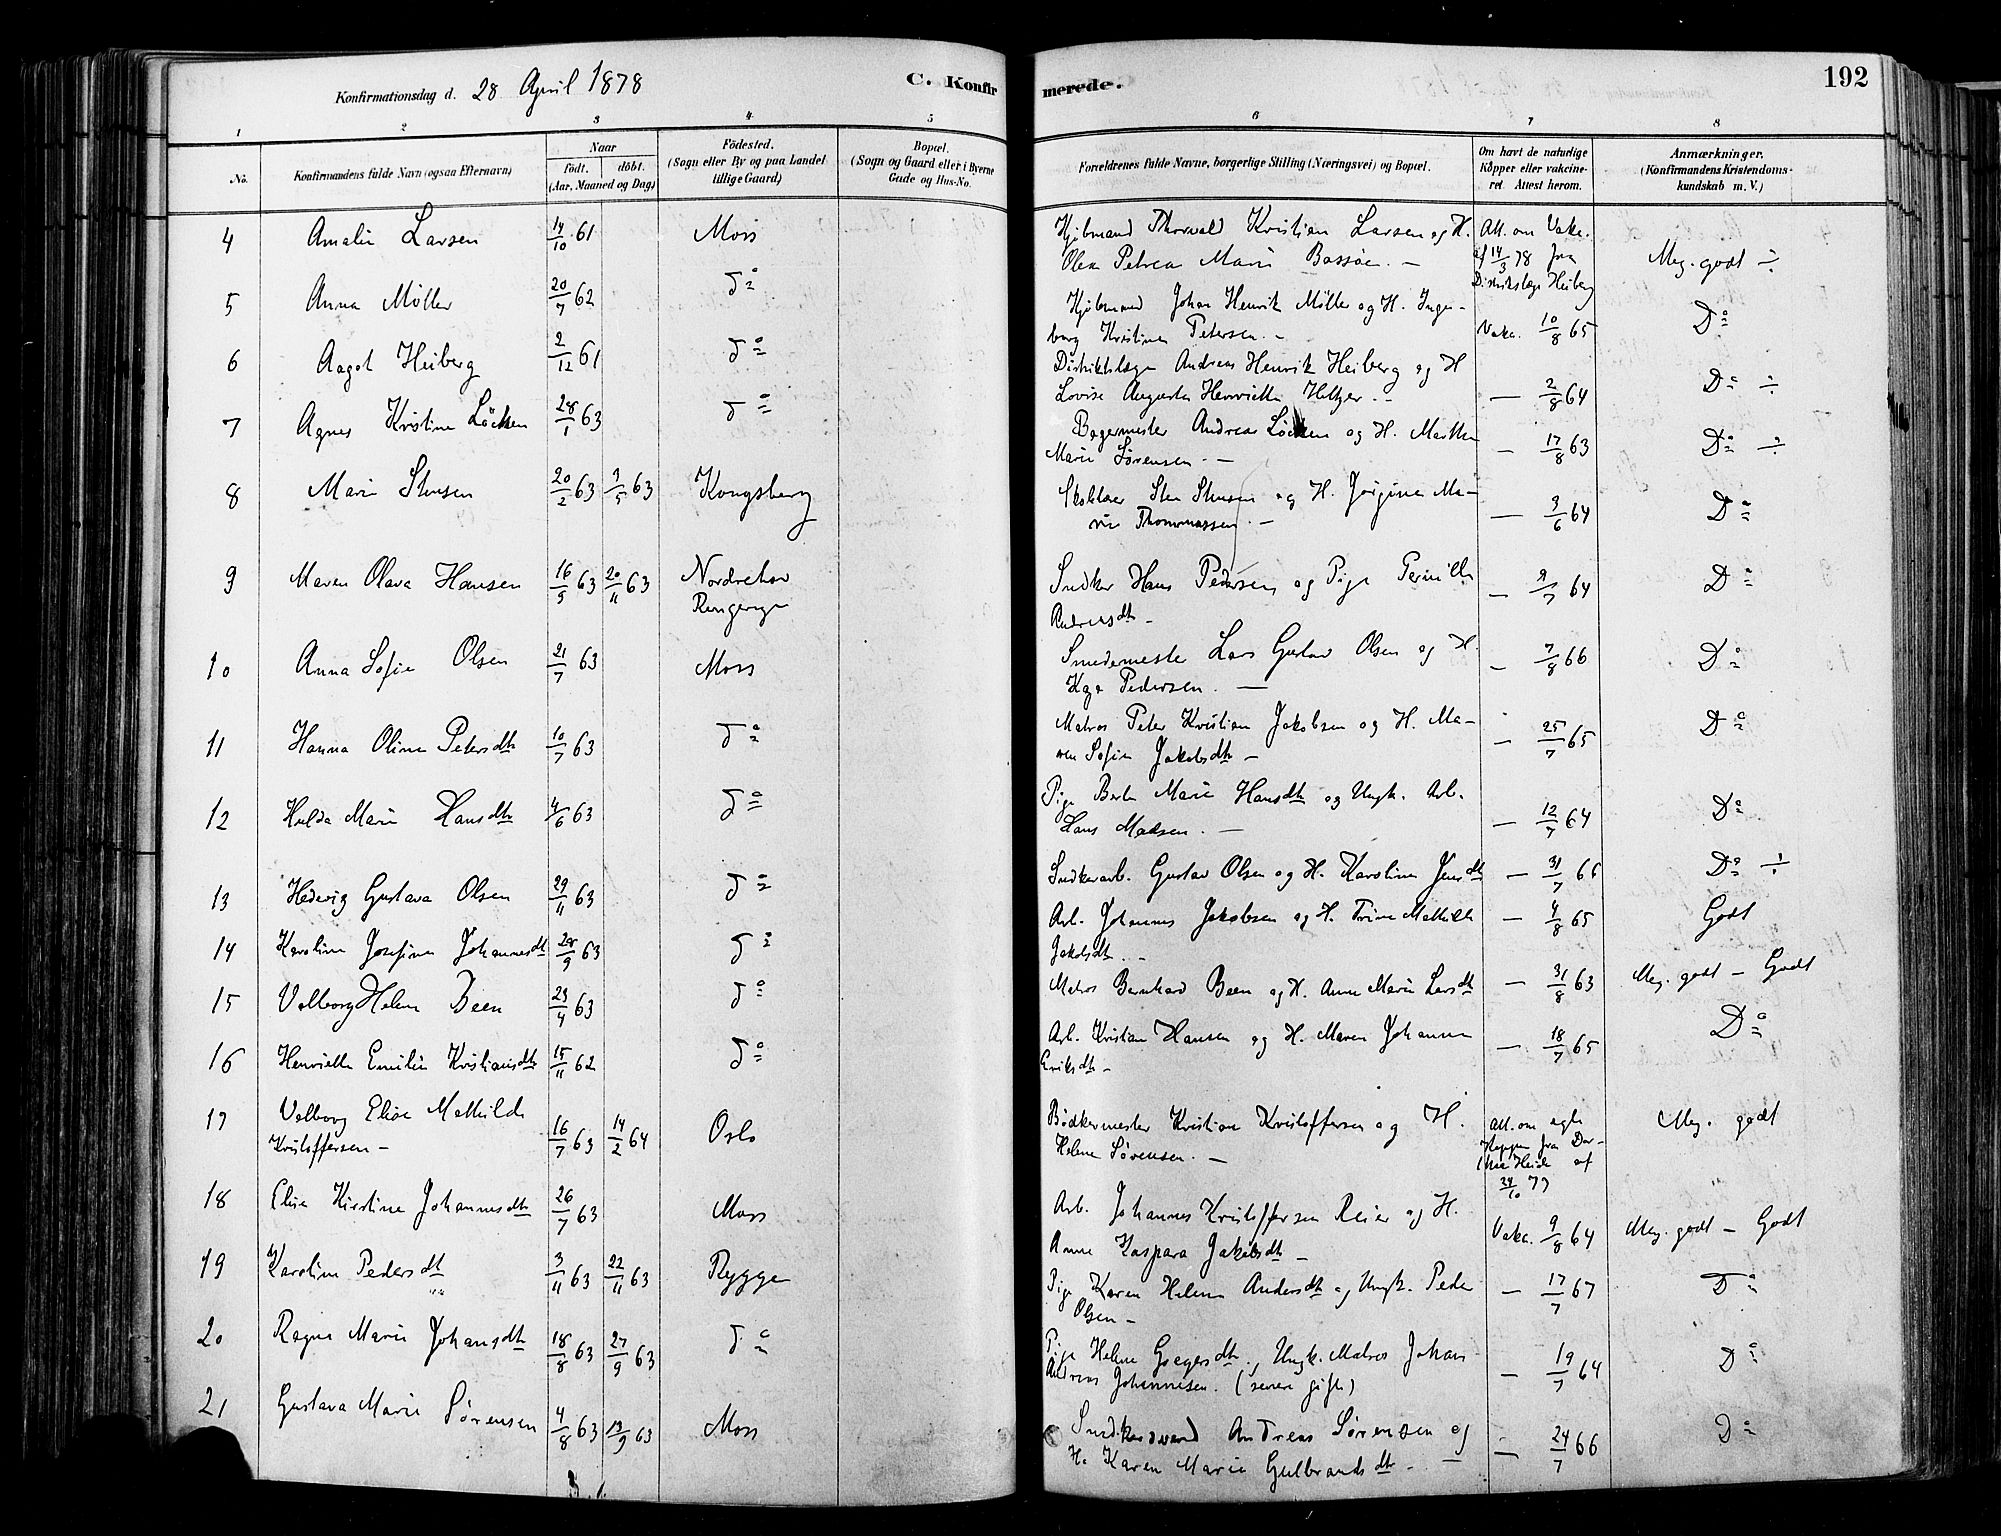 Konfirmationsdag d. 28 April 1878
C. Konfirmerede.
192
1 2 3 4 5 6 7 8
No.
Konfirmandens fulde Navn (ogsaa Efternavn)
Naar
født. døbt.
(Aar, Maaned og Dag)
Födested.
(Sogn eller By og paa Landet
tillige Gaard)
Bopæl.
(Sogn og Gaard eller i Byerne
Gade og Hus-No.
Forældrenes fulde Navne, borgerlige Stilling (Næringsvei) og Bopæl.
Om havt de naturlige
Kopper eller vakcine-
ret. Attest herom.
Anmærkninger.
(Konfirmandens Kristendoms-
kundskab m. V.)
4 Amalie Larsen 14/10 61 Moss Kjøbmand Thorvald Kristian Larsen og H. Att. om Vakc.
Olea Petrea Marie Bassøe. — af 14/3 78 fra Meg. godt ÷
Distriktslæge Heiberg
5 Anna Møller 20/7 62 do Kjøbmand Johan Henrik Møller og H. Inge-
borg Kristine Petersen. — Vakc. 10/8 65 Do
6 Aagot Heiberg 2/12 61 do Distriktslæge Andreas Henrik Heiberg og H
Lovise Augusta Henriette Heltzer. — — 2/8 64 Do ÷
7 Agnes Kristine Löcken 28/1 63 do Bagermester Andreas Löcken og H. Marthe
Marie Sørensen — — 17/8 63 Do ÷
8 Marie Stensen 20/2 63 3/5 63 Kongsberg Skolelær Sten Stensen og H. Jørgine Ma-
rie Thommassen. — — 3/6 64 Do
9 Maren Olava Hansen 16/9 63 20/11 63 Nordrehov Snedker Hans Pedersen og Pige Pernille — 9/7 64 Do
Ringerige Andersdtr —
10 Anna Sofie Olsen 21/7 63 Moss Smedemester Lars Gustav Olsen og H. — 7/8 66 Do
Pedersen. —
11 Hanna Oline Petersdtr 10/7 63 do Matros Peter Kristian Jakobsen og H. Ma- — 25/7 65 Do
ren Sofie Jakobsdtr —
12 Hulda Marie Hansdtr 4/6 63 do Pige Berte Marie Hansdtr og Ungk. Arb.
Hans Madsen. — — 12/7 64 Do
13 Hedevig Gustava Olsen 29/11 63 do Snedkerarb. Gustav Olsen og H. Karoline Jensdtr — 31/7 66 Do ÷
14 Karoline Josefine Johannesdtr 28/9 63 do Arb. Johannes Jakobsen og H. Trine Mathilde — 4/8 65 Godt
Jakobsdtr. —
15 Valborg Helene Been 23/4 63 do Matros Bernhard Been og H. Anne Marie Larsdtr — 31/8 63 Meg. godt — Godt
16 Henriette Emilie Kristiansdtr 15/11 62 do Arb. Kristian Hansen og H. Maren Johanne — 18/7 65 Do
Eriksdtr —
17 Valborg Elise Mathilde 16/7 63 14/2 64 Oslo Bødkermester Kristian Kristoffersen og H. Att. om egte Meg. godt
Kristoffersen — Helene Sørensen. — Kopper fra Doc-
Heide af
24/10 77
18 Elise Kirstine Johannesdtr 26/7 63 Moss Arb. Johannes Kristoffersen Reier og H.
Anne Kaspara Jakobsdtr — Vakc. 9/8 64 Meg. godt — Godt
19 Karoline Pedersdtr 3/11 63 22/11 63 Rygge Pige Karen Helene Andersdtr og Ungk. Peder — 17/7 67 Do
Olsen —
20 Ragna Marie Johansdtr 18/8 63 27/9 63 do Pige Helene Gregersdtr, Ungk. Matros Johan
Andreas Johannesen. (senere gift) — 19/7 64 Do
21 Gustava Marie Sørensen 4/8 63 13/9 63 Moss Snedkersvend Andreas Sørensen og — 24/7 66 Do
H. Karen Marie Gulbrandsdtr. —